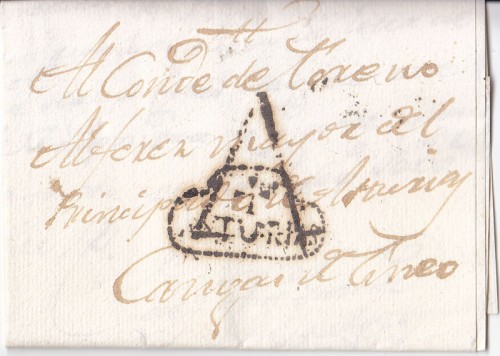 tt
Al Conde de Toreno
Alferez mayor del
Principado de Asturias
Cangas de Tineo
ASTURIAS